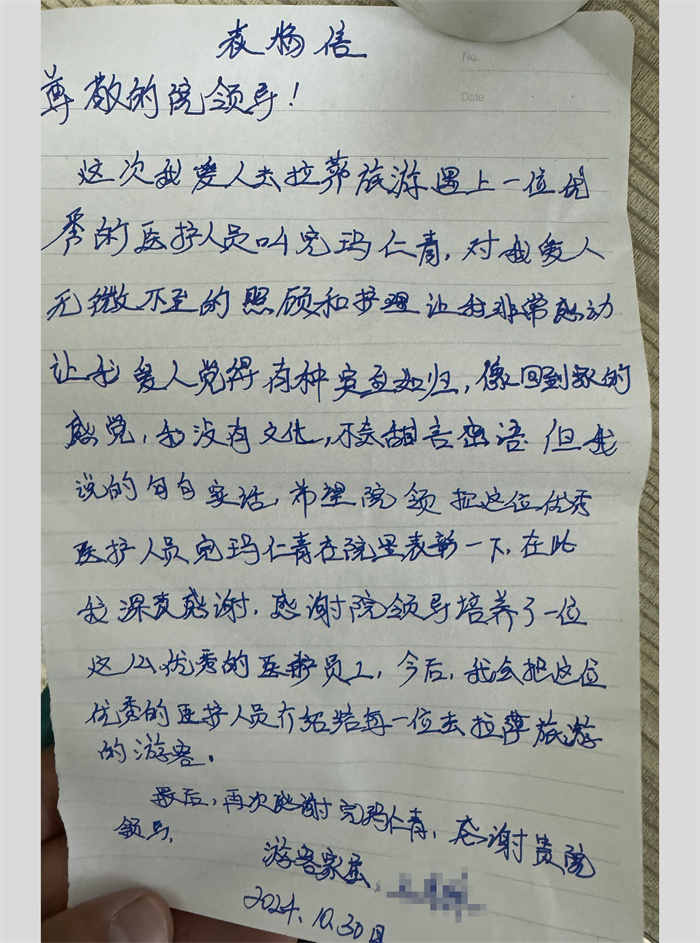 表扬信
No.
Date
尊敬的院领导!
这次我爱人去拉萨旅游遇上一位优
秀的医护人员叫完玛仁青,对我爱人
无微不至的照顾和护理让我非常感动
让我爱人觉得有种宾至如归,像回到家的
感觉,我没有文化,不会甜言密语但我
说的句句实话,希望院领把这位优秀
医护人员完玛仁青在院里表彰一下,在此
我深表感谢,感谢院领导培养了一位
这么优秀的医护员工,今后,我会把这位
优秀的医护人员介绍给每一位去拉萨旅游
的游客.
最后,再次感谢完玛仁青,感谢贵院
领导.
游客家属,
2024.10.30日